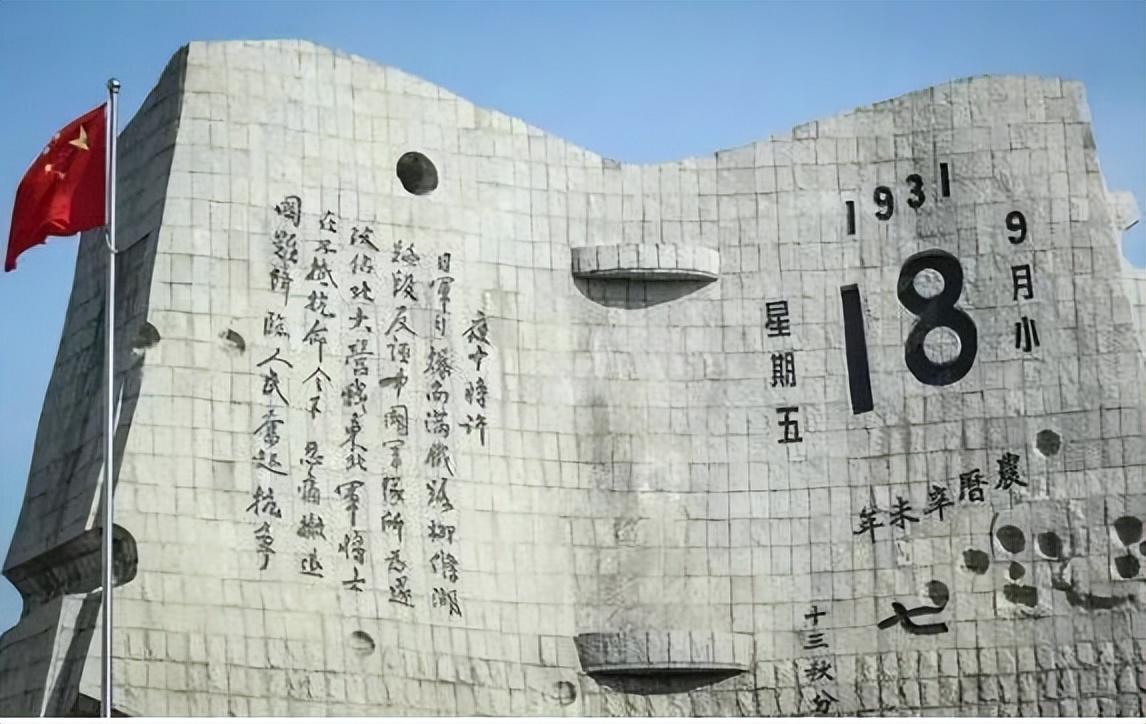 1931
9月小
18
星期五
農曆辛未年
七
十三秋分
夜十時許
日軍自爆南满鐵路柳條湖
路段反誣中國軍隊所為遂
攻佔北大營我東北軍將士
在不抵抗命令下忍痛撤退
國難降臨人民奮起抗爭